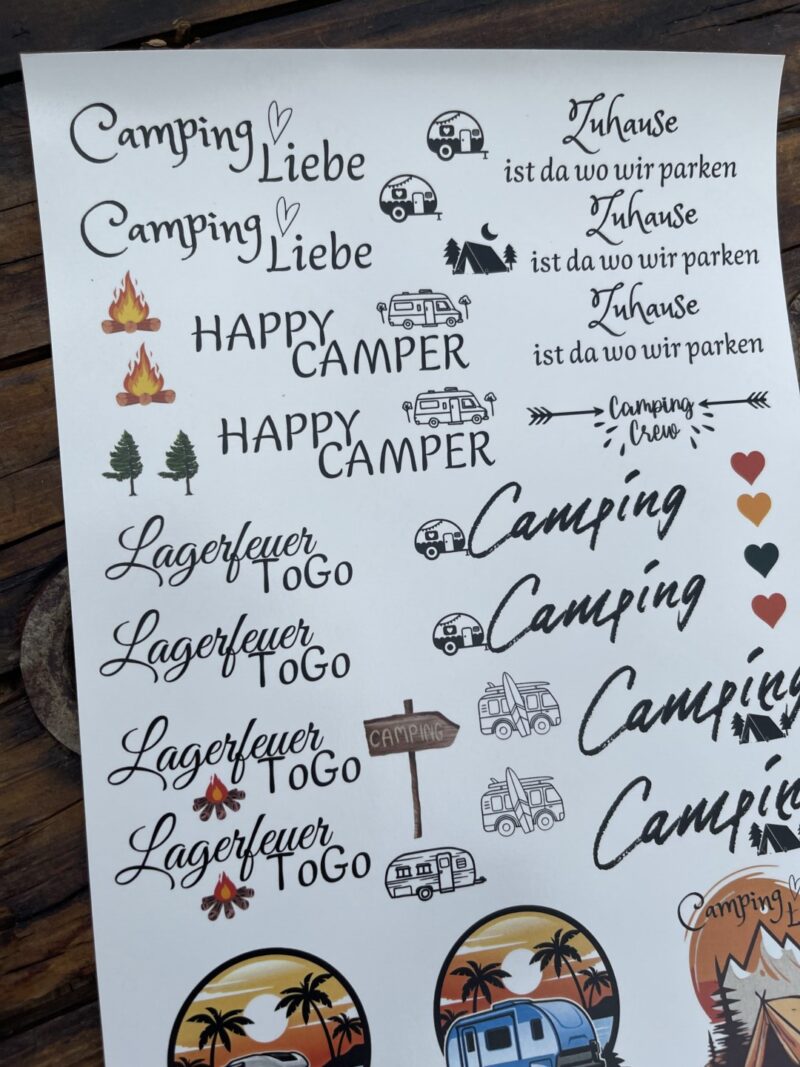 Camping
Liebe
Zuhause
ist da wo wir parken
Camping
Liebe
Zuhause
ist da wo wir parken
HAPPY
CAMPER
Zuhause
ist da wo wir parken
HAPPY
CAMPER
Camping
Crew
Lagerfeuer
ToGo
Camping
Lagerfeuer
ToGo
Camping
Lagerfeuer
ToGo
CAMPING
Camping
Lagerfeuer
ToGo
Camping
Camping